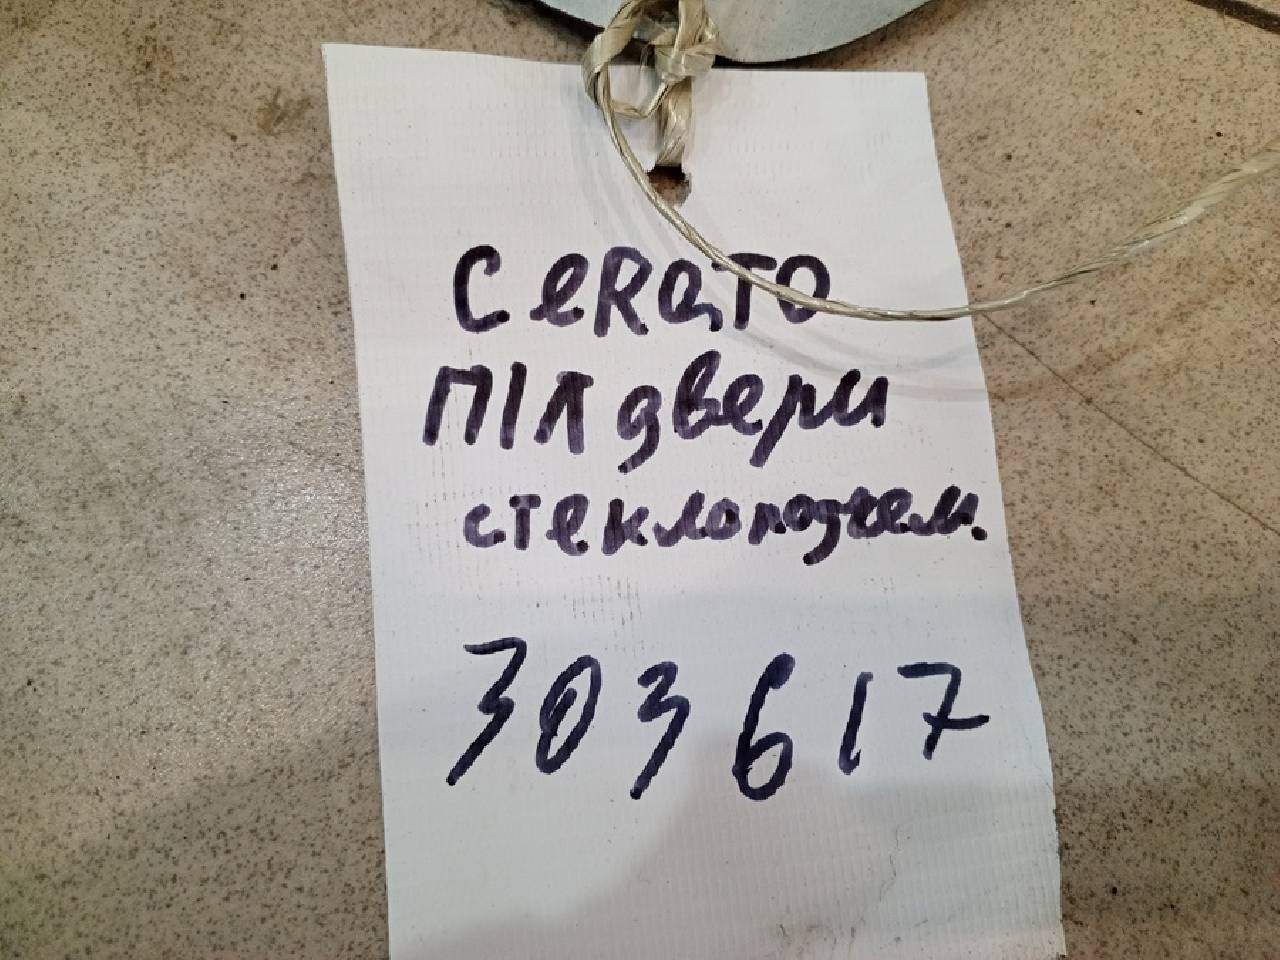 CeRaTO
П/Л двери
стеклоподъем.
303617